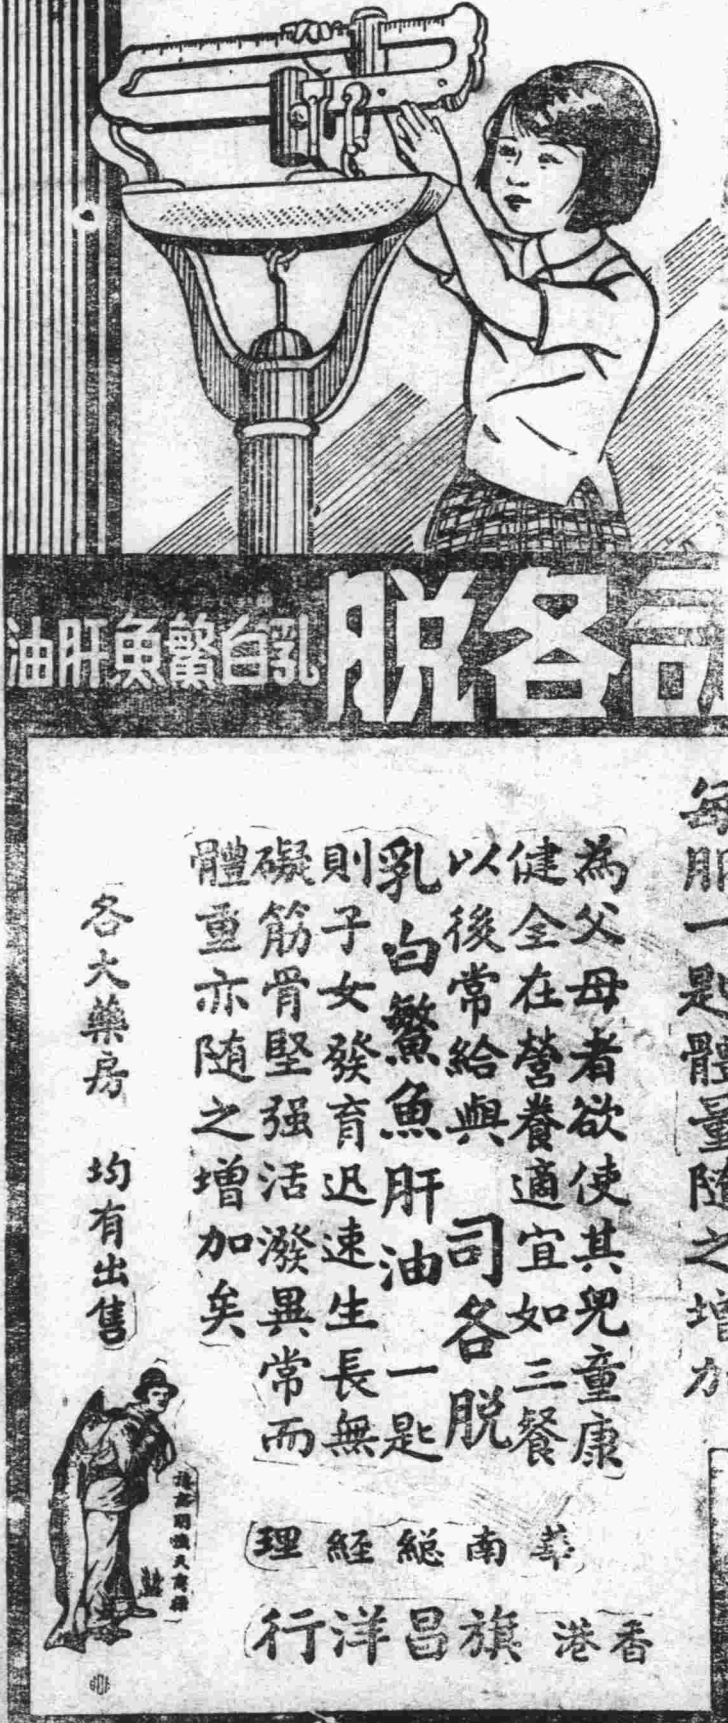 司各脫
乳白鰵魚肝油
每服一匙體量隨之增加
為父母者欲使其兒童康
健全在營養適宜如三餐
以後常給與司各脫
乳白鰵魚肝油一匙
則子女發育迅速生長無
礙筋骨堅强活潑異常而
體重亦随之增加矣
各大藥房 均有出售
華南總經理
香港旗昌洋行